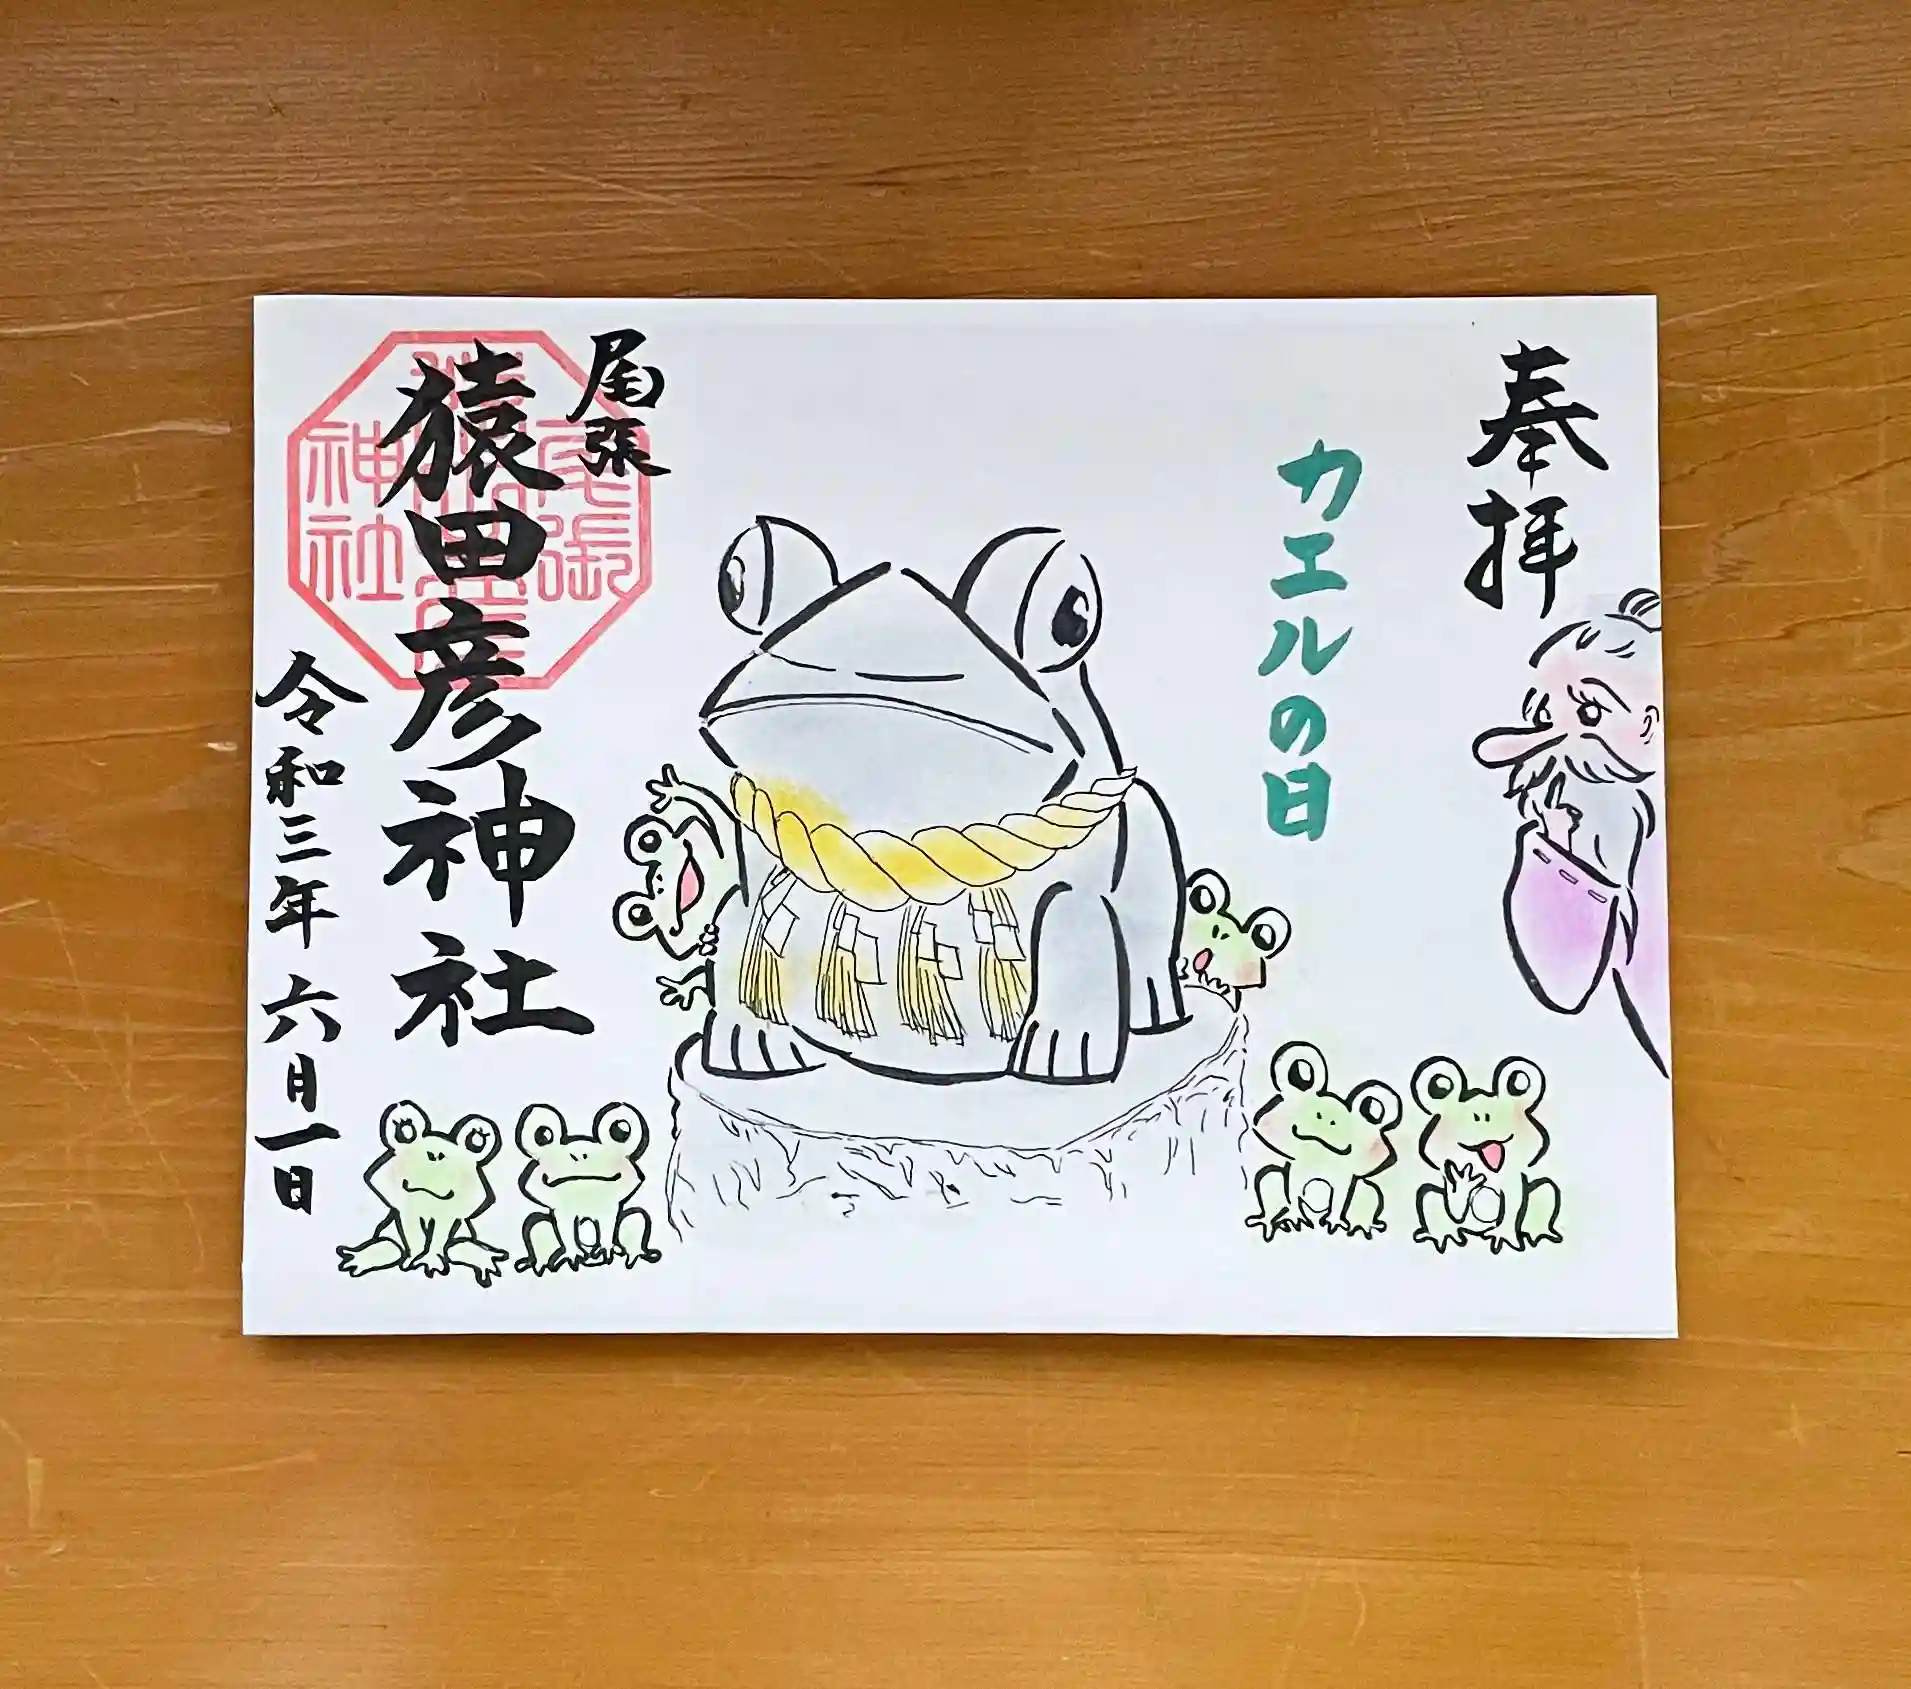 奉拝
カエルの日
尾張
猿田彦神社
令和三年六月一日
尾張
神社